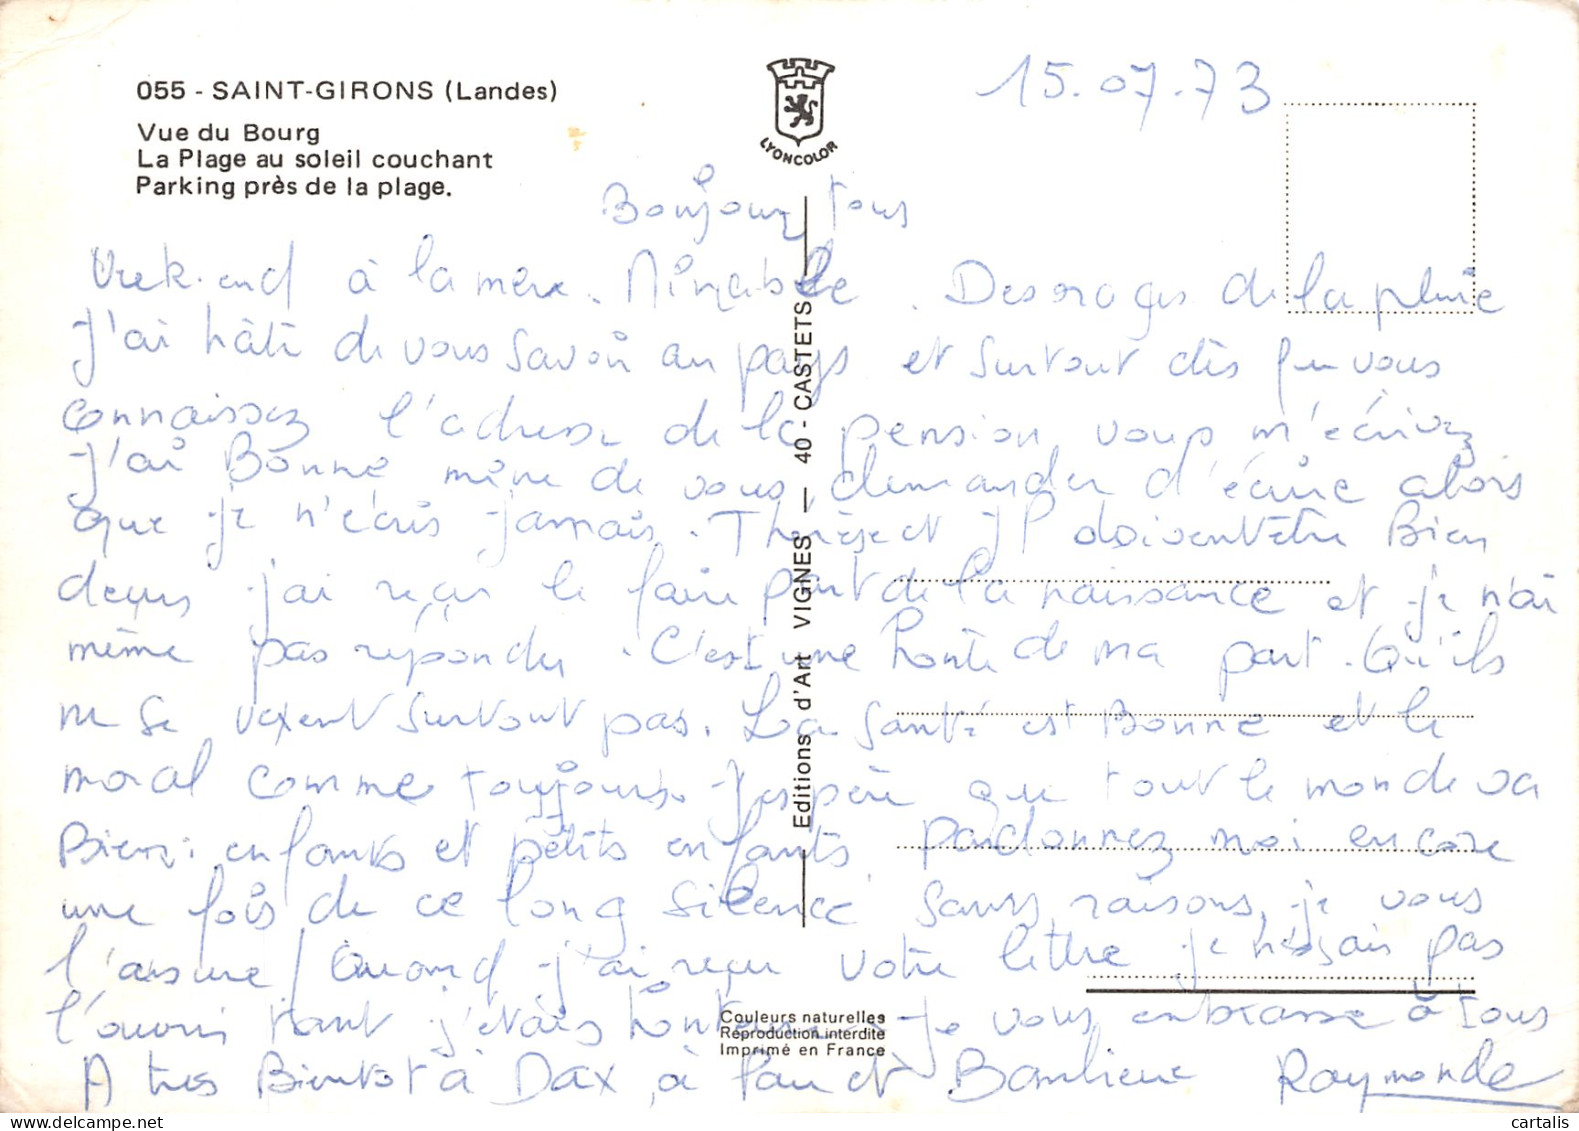 055 - SAINT-GIRONS (Landes)
Vue du Bourg
La Plage au soleil couchant
Parking près de la plage.
LYONCOLOR
15.07.73
Bonjour tous
Week-end à la mer. Mimizan. Des orages de la pluie
J'ai hâte de vous savoir au pays et surtout dès que vous
connaissez l'adresse de la pension vous m'écrivez
J'ai Bonne mine de vous demander d'écrire alors
que je n'écris jamais. Thérèse et JP doivent être Bien
déçus j'ai reçu le faire part de la naissance et je n'ai
même pas répondu. C'est une honte de ma part. Qu'ils
ne se vexent surtout pas. La santé est Bonne et le
moral comme toujours. J'espère que tout le monde va
Bien: enfants et petits enfants pardonnez moi encore
une fois de ce long silence sans raisons, je vous
l'assure / Quand j'ai reçu votre lettre je n'osais pas
l'ouvrir tant j'étais honteuse. Je vous embrasse à tous
A très Bientot à Dax, à Pau et Banlieue Raymonde
Editions d'Art VIGNES — 40 - CASTETS
Couleurs naturelles
Reproduction interdite
Imprimé en France
cartalis